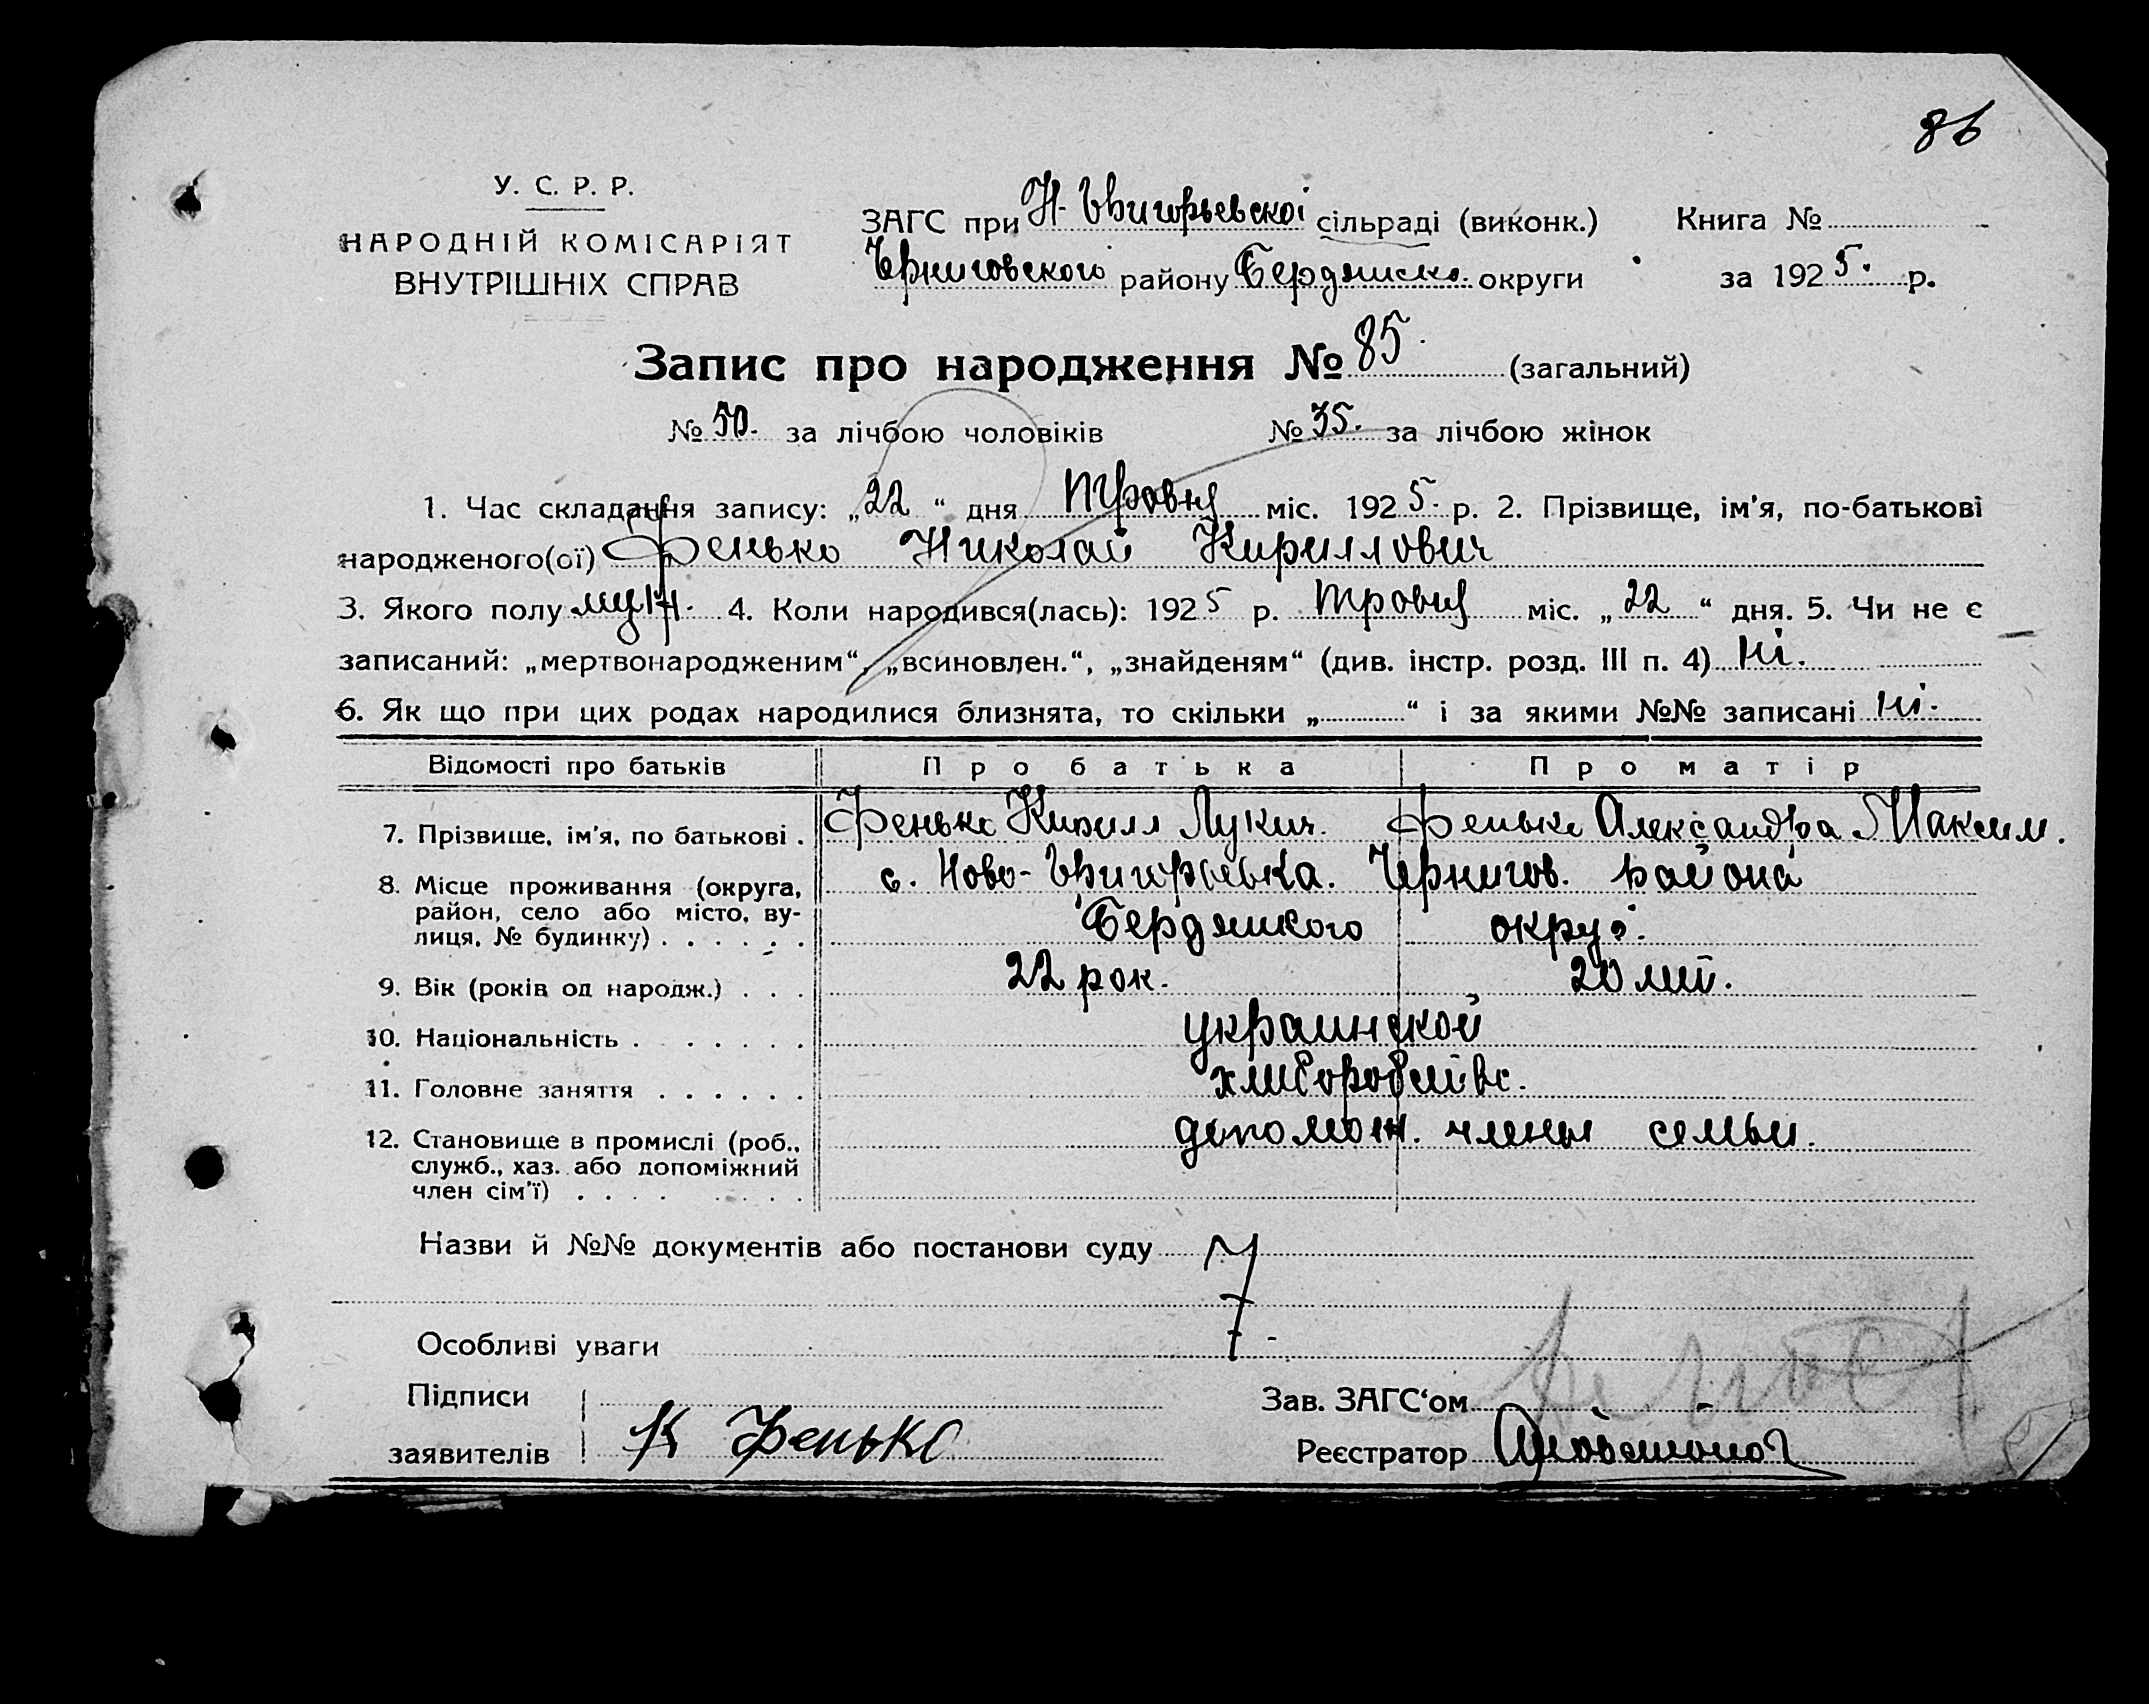 86
У. С. Р. Р.
НАРОДНІЙ КОМІСАРІЯТ
ВНУТРІШНІХ СПРАВ
ЗАГС при Н-Григорьевскоі сільраді (виконк.) Книга №
Черниговского району Бердянско. округи за 1925. р.
Запис про народження № 85. (загальний)
№ 50. за лічбою чоловіків № 35. за лічбою жінок
1. Час складання запису: „22“ дня травня міс. 1925. р. 2. Прізвище, ім'я, по-батькові
народженого(ої) Фенько Николай Кириллович
3. Якого полу муж. 4. Коли народився(лась): 1925 р. травня міс. „22“ дня. 5. Чи не є
записаний: „мертвонародженим“, „всиновлен.“, „знайденям“ (див. інстр. розд. III п. 4) ні.
6. Як що при цих родах народилися близнята, то скільки „ “ і за якими №№ записані ні.
Відомості про батьків Про батька Про матір
7. Прізвище, ім'я, по батькові . Фенько Кирилл Лукич. Фенько Александра Максим.
8. Місце проживання (округа, район, село або місто, вулиця, № будинку) . . . . . . с. Ново-Григорьевка. Чернигов. района
Бердянского округ.
9. Вік (років од народж.) . . . 22 рок. 20 лит.
10. Національність . . . . . . украинской
11. Головне заняття . . . . . . хлиборобств.
12. Становище в промислі (роб., служб., хаз. або допоміжний член сім'ї) . . . . допомож. члены семьи.
Назви й №№ документів або постанови суду
Особливі уваги
Підписи
заявителів К Фенько
Зав. ЗАГС'ом
Реєстратор